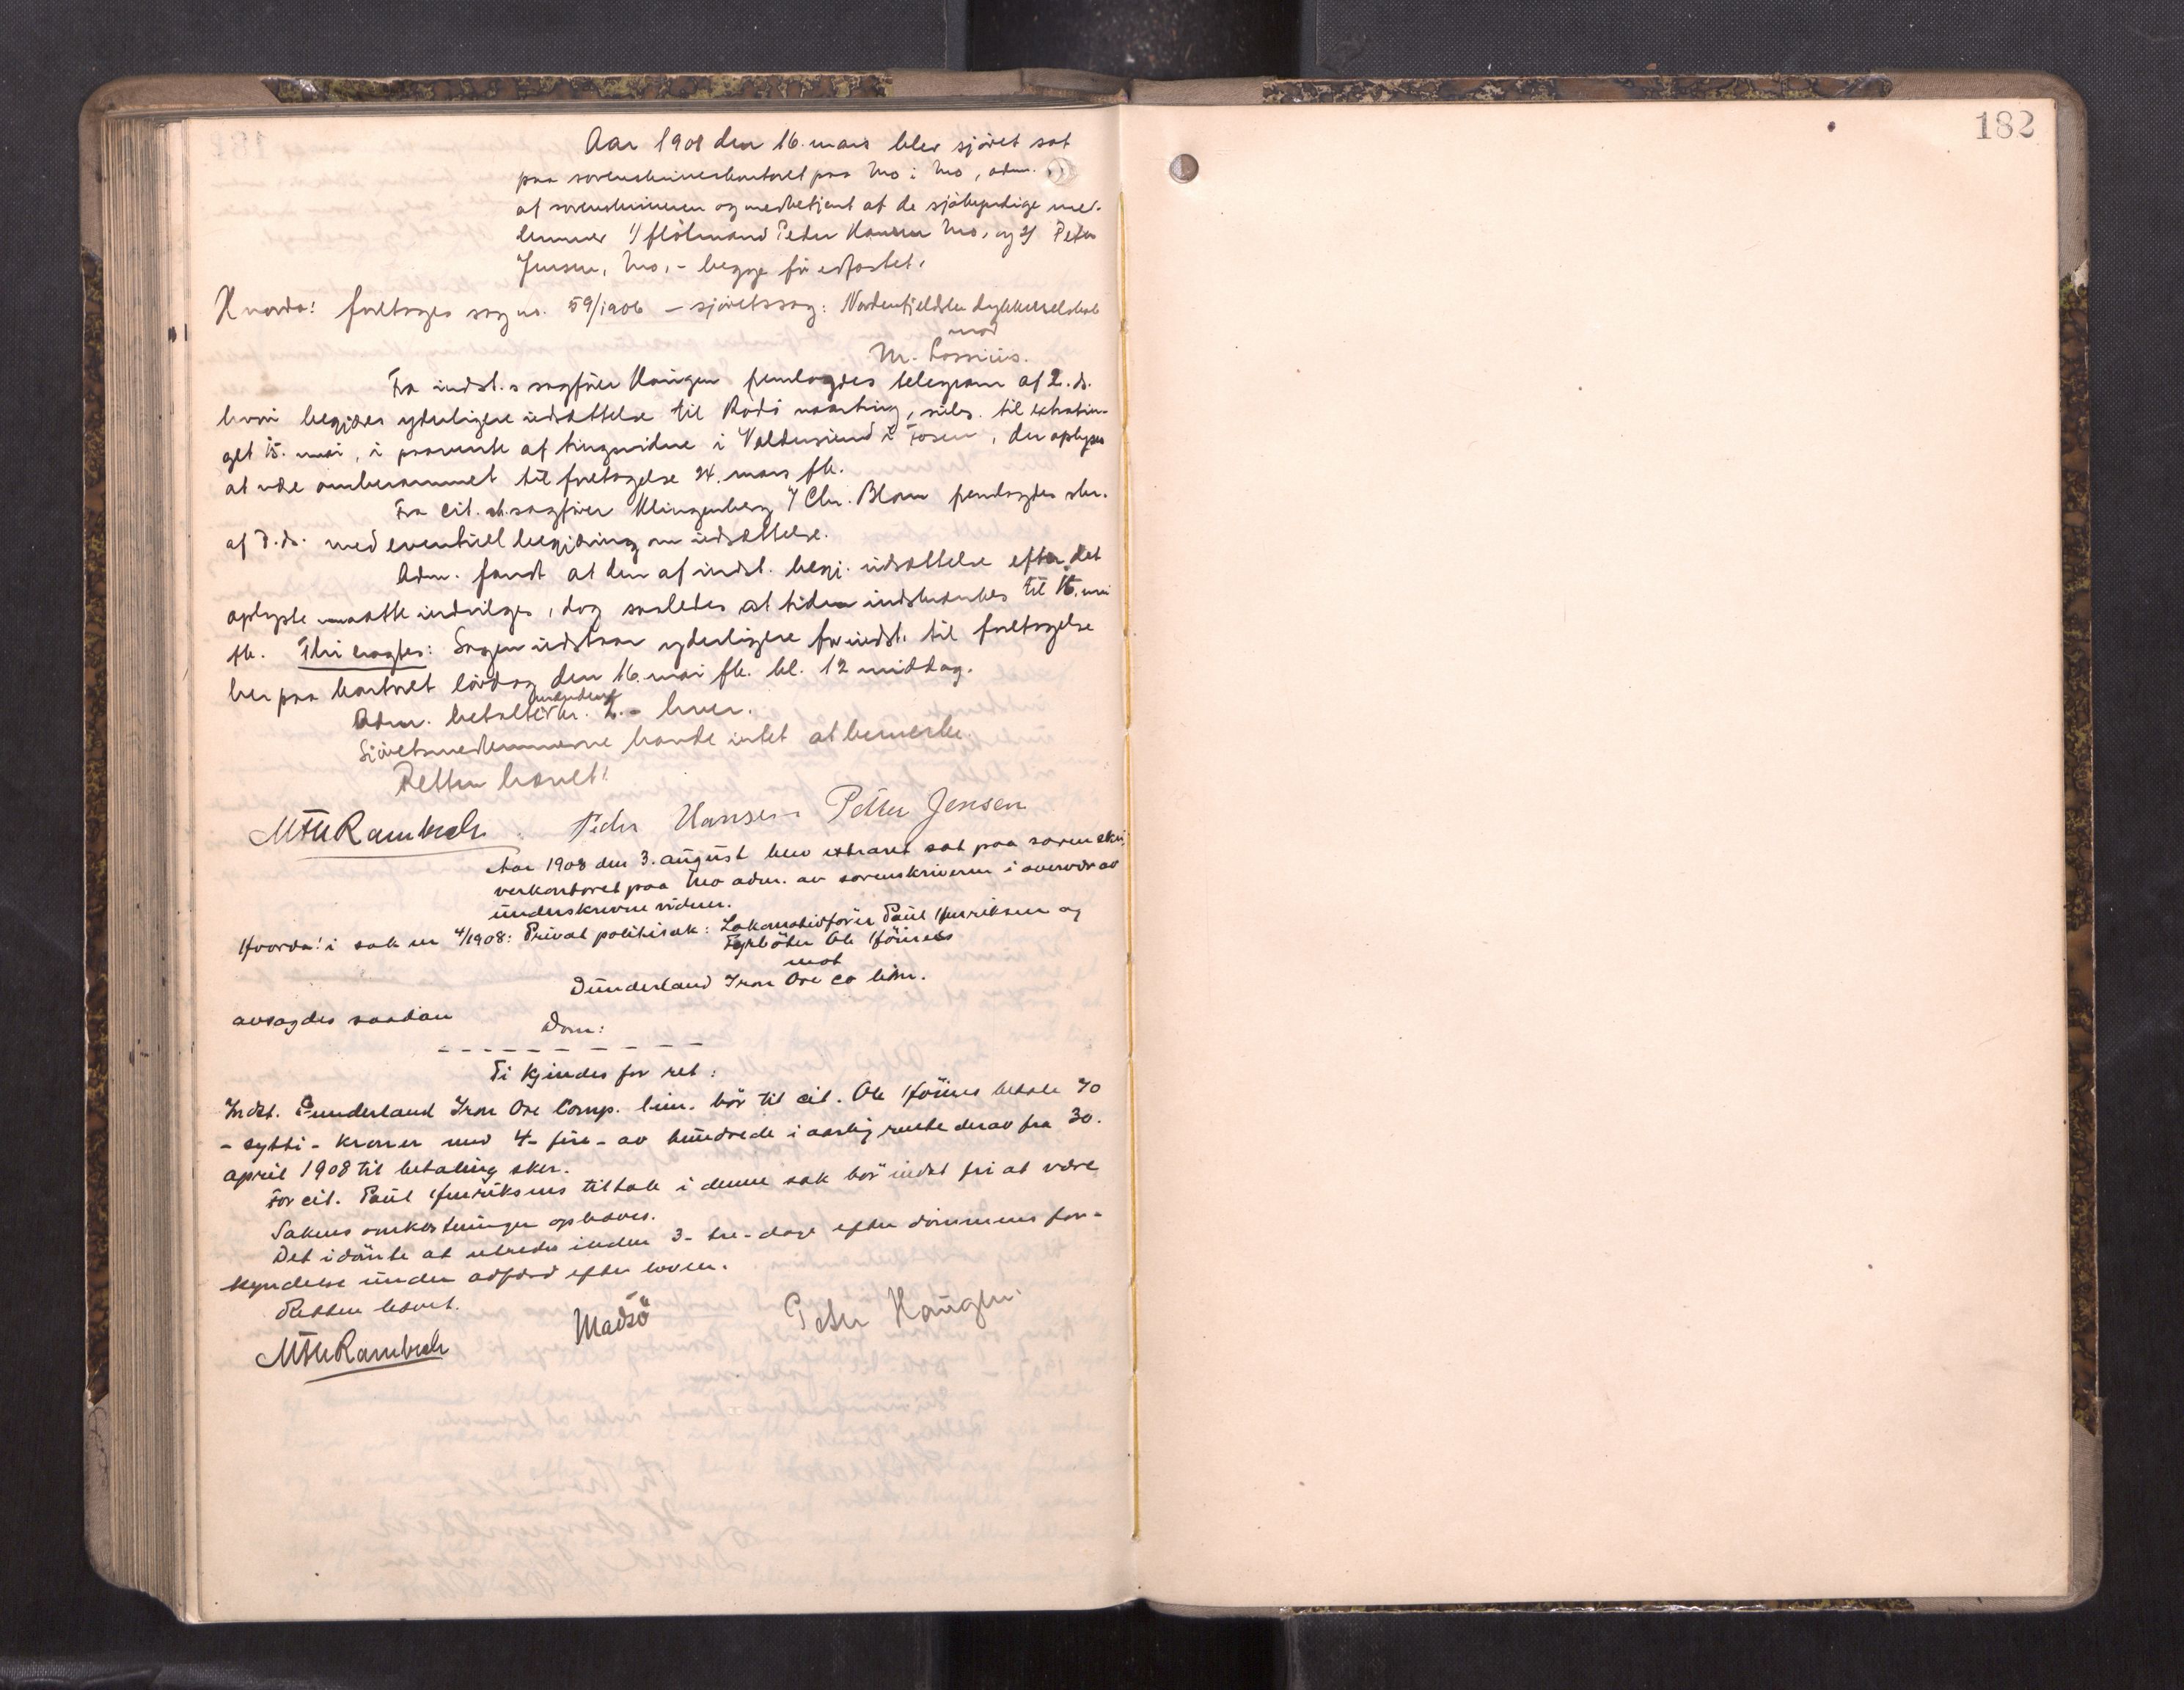 182
Aar 1908 den 16. mars blev sjöret sat
paa sorenskriverkontoret paa Mo i Mo, adm.
af sorenskriveren og medbetjent af de sjökyndige med-
lemmer 1/ flötmand Peder Hansen Mo, og 2/ Peter
Jensen, Mo, - begge för edfæstet.
Hvorda! foretages sag no. 59/1906 - sjöretssag: Nordenfjeldske dykkerselskab
mod
M. Lossius.
Fra indst.s sagförer Haugen fremlagdes telegram af 2. ds.
hvori begjæres yderligere udsættelse til Rödö vaarting, subs. til extratin-
get 15. mai, i paavente af tingsvidne i Valdersund i Fosen, der oplyses
at være omberammet til foretagelse 24. mars fk.
Fra cit. sh. sagförer Klingenberg v/ Chr. Blom fremlagdes skr.
af d. ds. med eventuel begjæring om udsættelse.
Adm. fandt at den af indst. begj. udsættelse efter det
oplyste maatte indvilges, dog saaledes at tiden indskrænkes til 16. mai
fk. Thi eragtes: Sagen udstaar yderligere for indst. til foretagelse
her paa kontoret lördag den 16. mai fk. kl. 12 middag.
Adm. betalte kr. 2.- hver.
Sjöretsmedlemmerne havde intet at bemerke.
Retten hævet!
MTHRambech. Peder Hansen Petter Jensen
Aar 1908 den 3. august blev extraret sat paa sorenskri-
verkontoret paa Mo adm. av sorenskriveren i overvær av
underskrevne vidner.
Hvorda! i sak nr 4/1908: Privat politisak: Lokomotivförer Paul Henriksen og
Fyrböter Ole Höines
mot
Dunderland Iron Ore Co lim.
avsagdes saadan
Dom:
- - - - - - - - - -
Ti kjendes for ret:
Indst. Dunderland Iron Ore Comp. lim. bör til cit. Ole Höines betale 70
- sytti - kroner med 4 - fire - av hundrede i aarlig rente derav fra 30.
april 1908 til betaling sker.
For cit. Paul Henriksens tiltale i denne sak bör indst fri at være
Sakens omkostninger ophæves.
Det idömte at utredes inden 3 - tre - dage efter dommens for-
kyndelse under adfærd efter loven.
Retten hævet.
MTHRambech Madsö Peter Haugen.